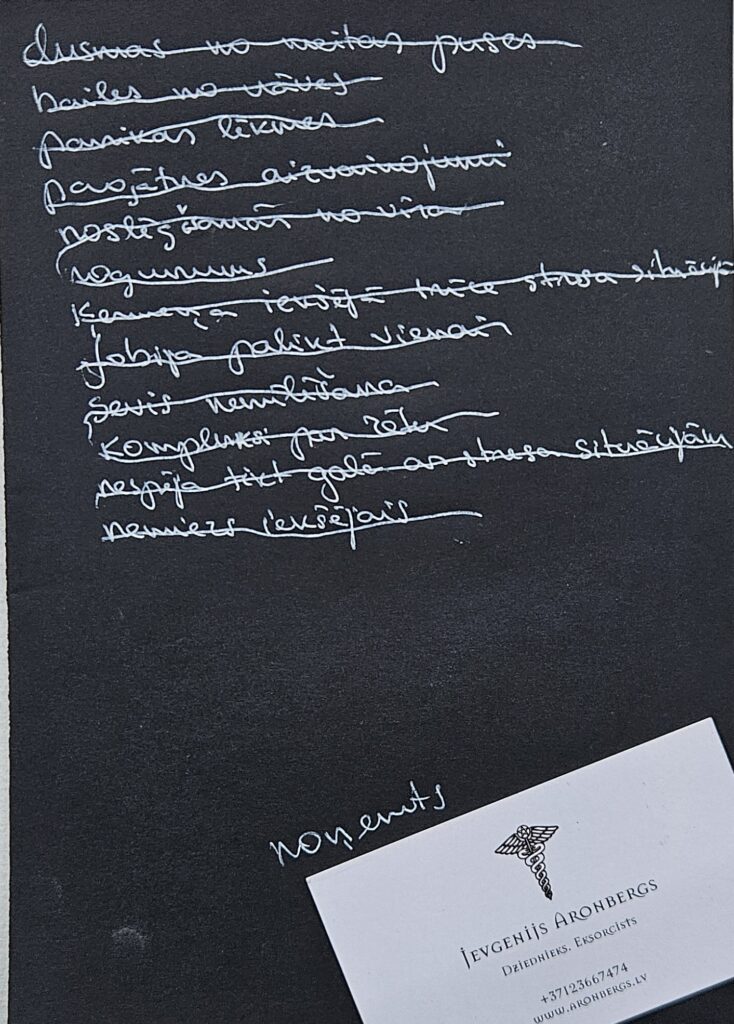 dusmas no meitas puses
bailes no nāves
panikas lēkmes
pagātnes aizvainojumi
noslēgšanās no vīra
nogurums
Ķermeņa iekšējā trīce stresa situācijā
fobija palikt vienai
sevis nemīlēšana
kompleksi par rētu
nespēja tikt galā ar stresa situācijām
nemiers iekšējais
noņemts
Jevgenijs Aronbergs
Dziednieks, Eksorcists
+37123667474
www.aronbergs.lv